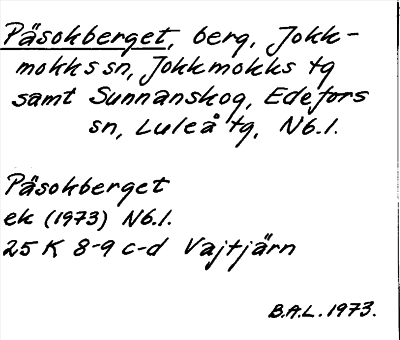 Päsokberget, berg, Jokk-
mokks sn, Jokkmokks tg
samt Sunnanskog, Edefors
sn, Luleå tg, Nb.l.
Päsokberget
ek (1973) Nb.l.
25 K 8-9 c-d Vajtjärn
B.A.L. 1973.